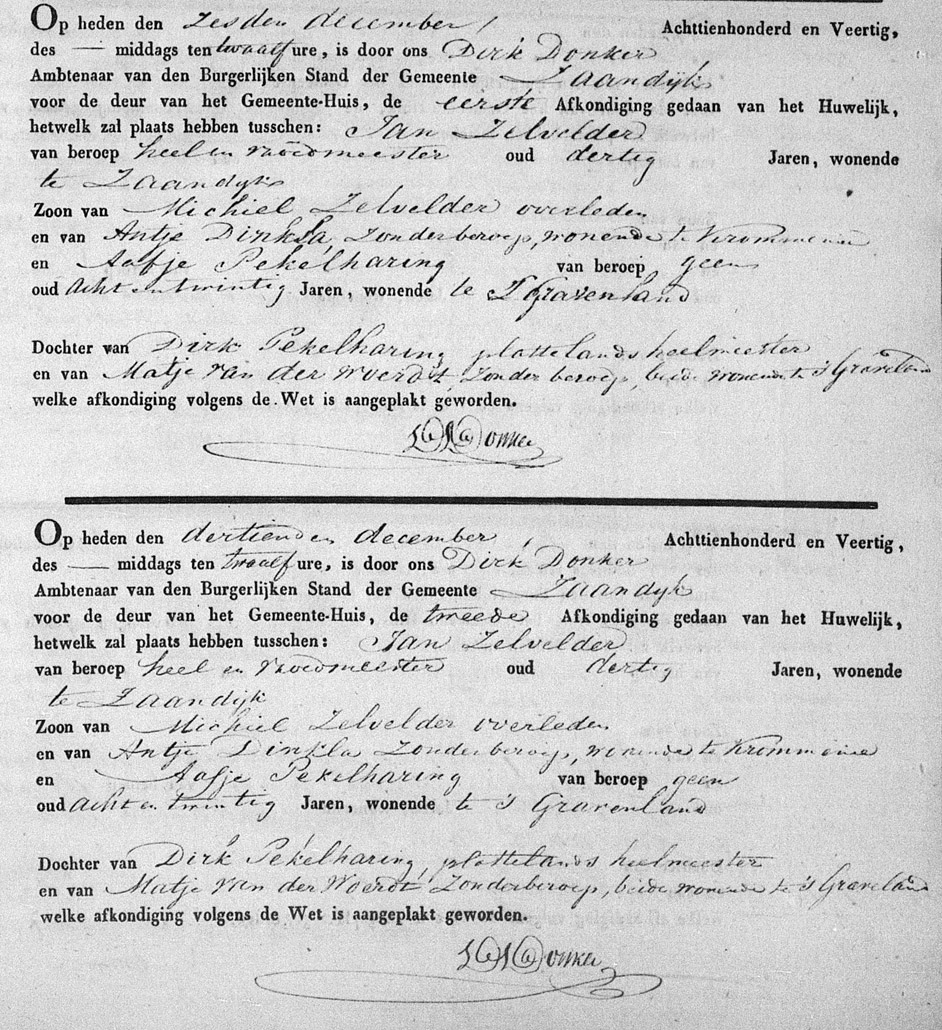 Op heden den zesden december, Achttienhonderd en Veertig,
des — middags ten twaalf ure, is door ons Dirk Donker
Ambtenaar van den Burgerlijken Stand der Gemeente Zaandijk
voor de deur van het Gemeente-Huis, de eerste Afkondiging gedaan van het Huwelijk,
hetwelk zal plaats hebben tusschen: Jan Zelvelder
van beroep heel en vroedmeester oud dertig Jaren, wonende
te Zaandijk
Zoon van Michiel Zelvelder overleden
en van Antje Dinkla, Zonder beroep, wonende te Krommenie
en Aafje Pekelharing van beroep geen
oud Acht en twintig Jaren, wonende te 's Gravenland
Dochter van Dirk Pekelharing plattelands heelmeester
en van Matje van der Woerdt, Zonder beroep, beide wonende te 's Graveland
welke afkondiging volgens de Wet is aangeplakt geworden.
Donker
Op heden den dertienden december, Achttienhonderd en Veertig,
des — middags ten twaalf ure, is door ons Dirk Donker
Ambtenaar van den Burgerlijken Stand der Gemeente Zaandijk
voor de deur van het Gemeente-Huis, de tweede Afkondiging gedaan van het Huwelijk,
hetwelk zal plaats hebben tusschen: Jan Zelvelder
van beroep heel en vroedmeester oud dertig Jaren, wonende
te Zaandijk
Zoon van Michiel Zelvelder overleden
en van Antje Dinkla Zonder beroep, wonende te Krommenie
en Aafje Pekelharing van beroep geen
oud acht en twintig Jaren, wonende te 's Gravenland
Dochter van Dirk Pekelharing, plattelands heelmeester
en van Matje van der Woerdt Zonder beroep, beide wonende te 's Graveland
welke afkondiging volgens de Wet is aangeplakt geworden.
Donker